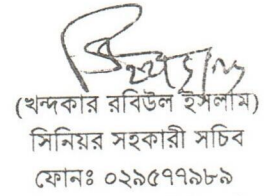 (খন্দকার রবিউল ইসলাম)
সিনিয়র সহকারী সচিব
ফোনঃ ০২৯৫৭৭৯৮৯